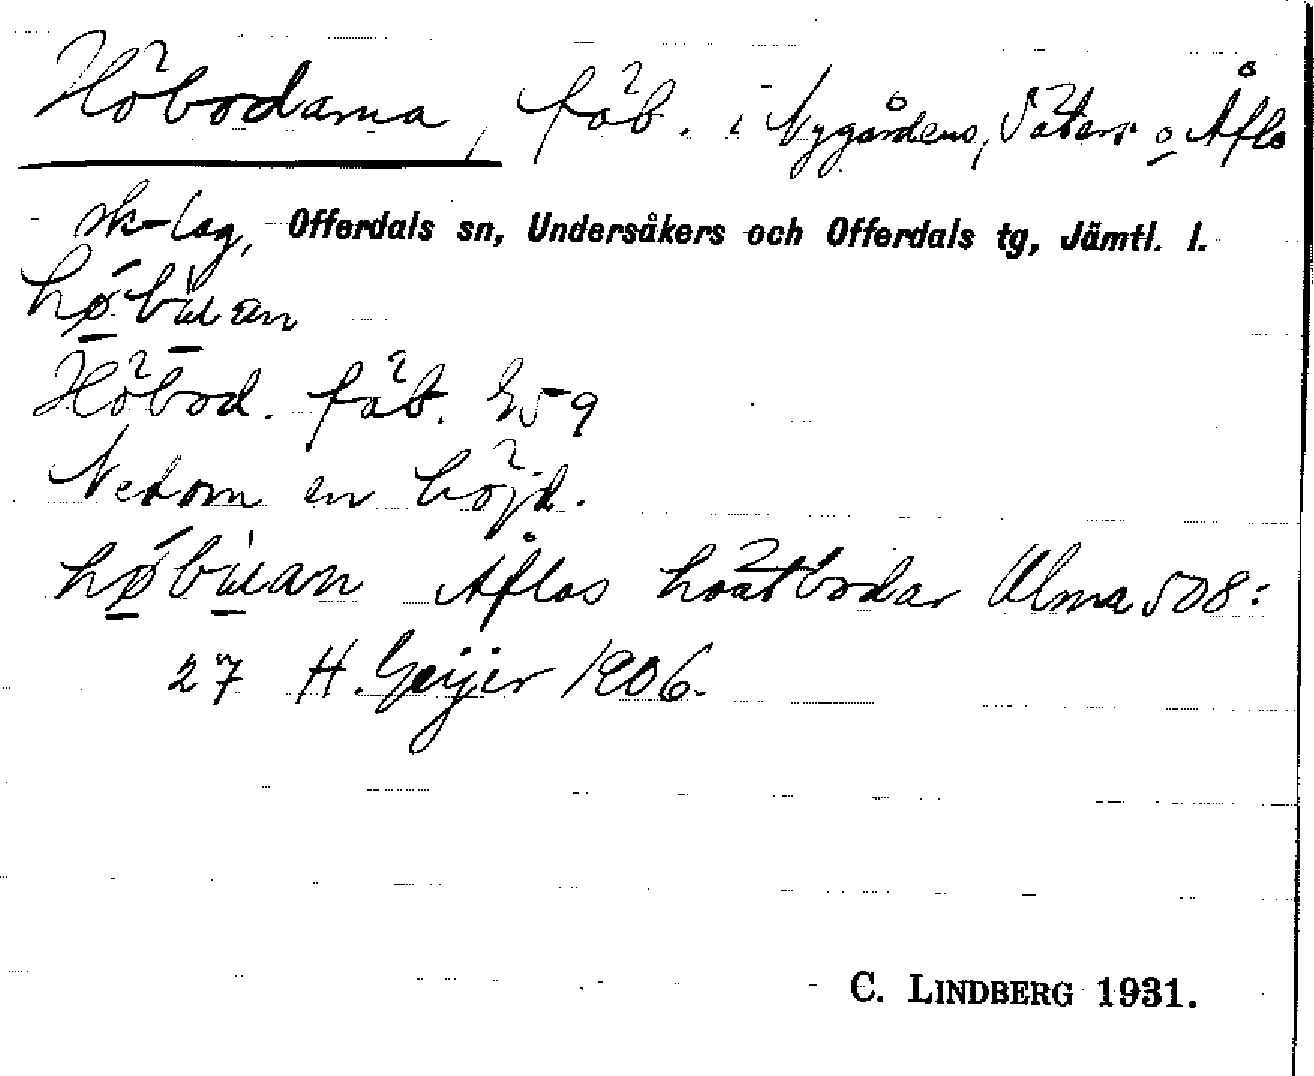 Höbodarna, fäb. i Nygårdens, Säters o Åflo
sk-lag, Offerdals sn, Undersåkers och Offerdals tg, Jämtl. l.
Höbod. fäb. E59
Nedom en höjd.
Åflos höstbodar Ulma 508:
27 H. Geijer 1906.
C. LINDBERG 1931.